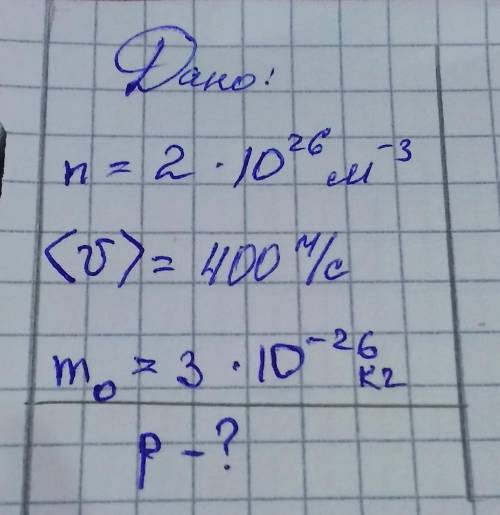 Дано:
n = 2 · 10²⁶ м⁻³
⟨v⟩ = 400 м/с
m₀ = 3 · 10⁻²⁶ кг
p - ?